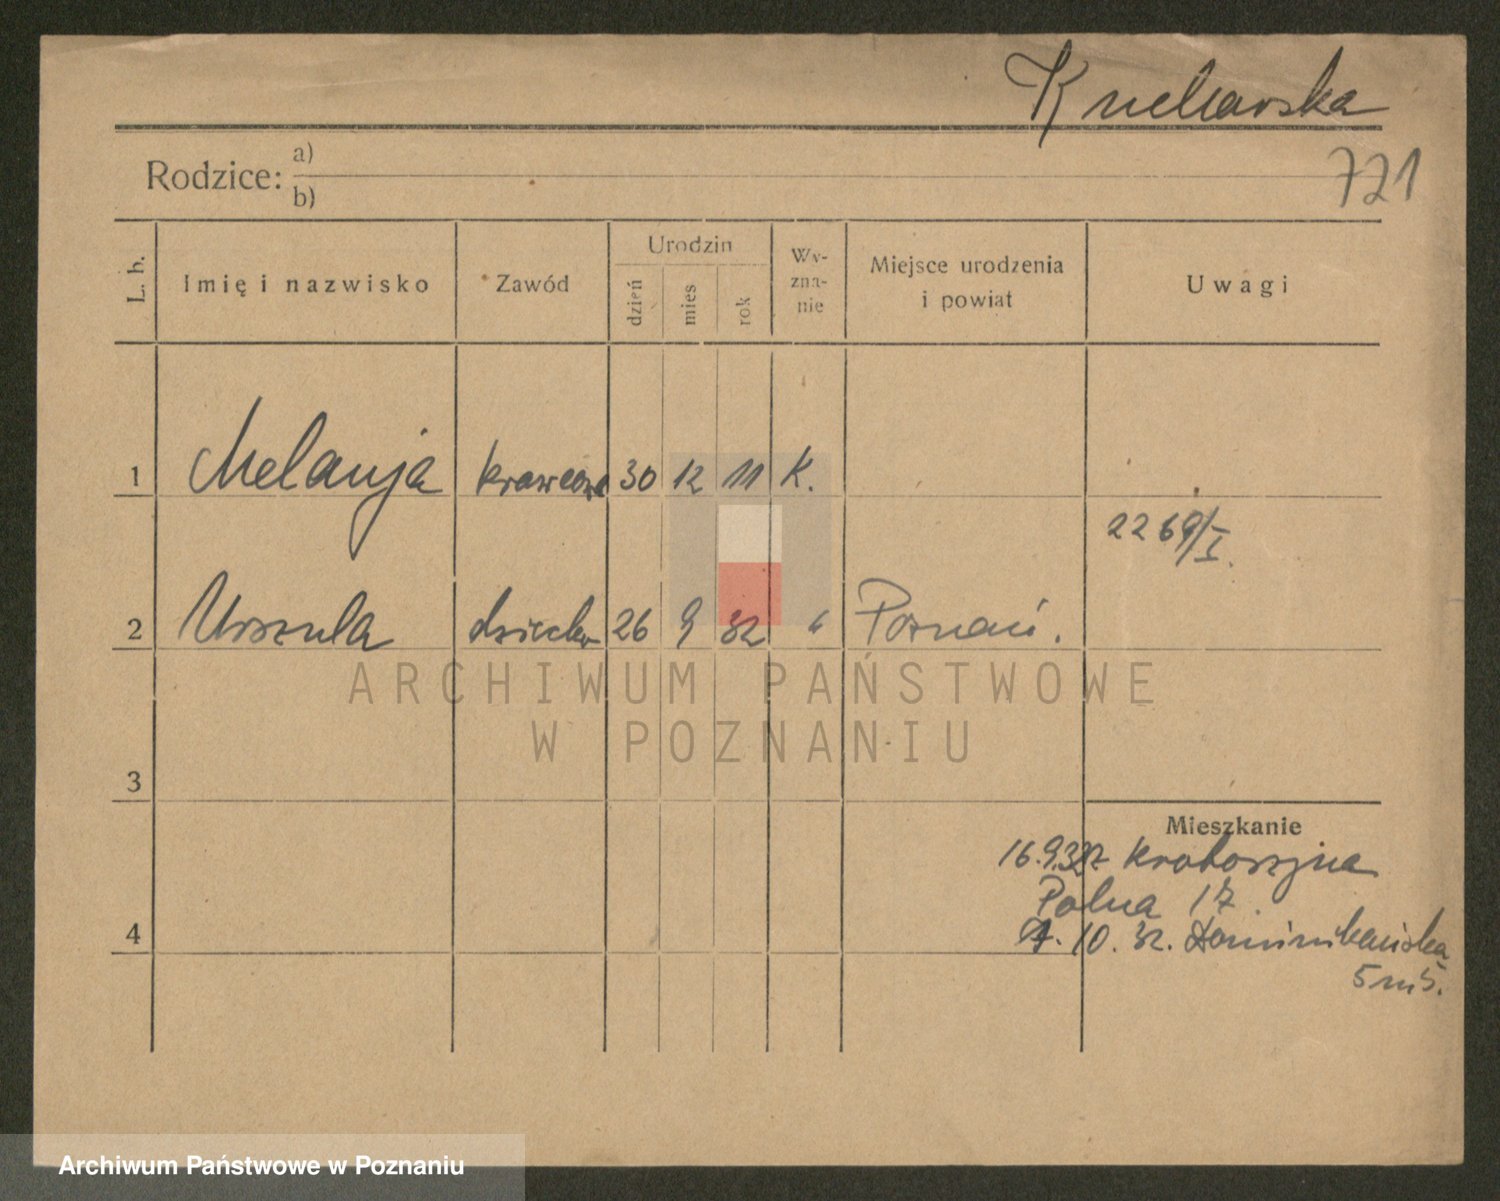 Kucharska
721
Rodzice: a)
b)
L. b.
Imię i nazwisko
Zawód
Urodzin
dzień
mies
rok
Wy-
zna-
nie
Miejsce urodzenia
i powiat
Uwagi
1 Melanja krawcowa 30 12 11 K.
2269/I.
2 Urszula dziecko 26 9 32 " Poznań.
ARCHIWUM PAŃSTWOWE
W POZNANIU
3
Mieszkanie
16.9.32 Krotoszyna
Polna 17
4
4. 10. 32. Dominikańska
5 m 5.
Archiwum Państwowe w Poznaniu